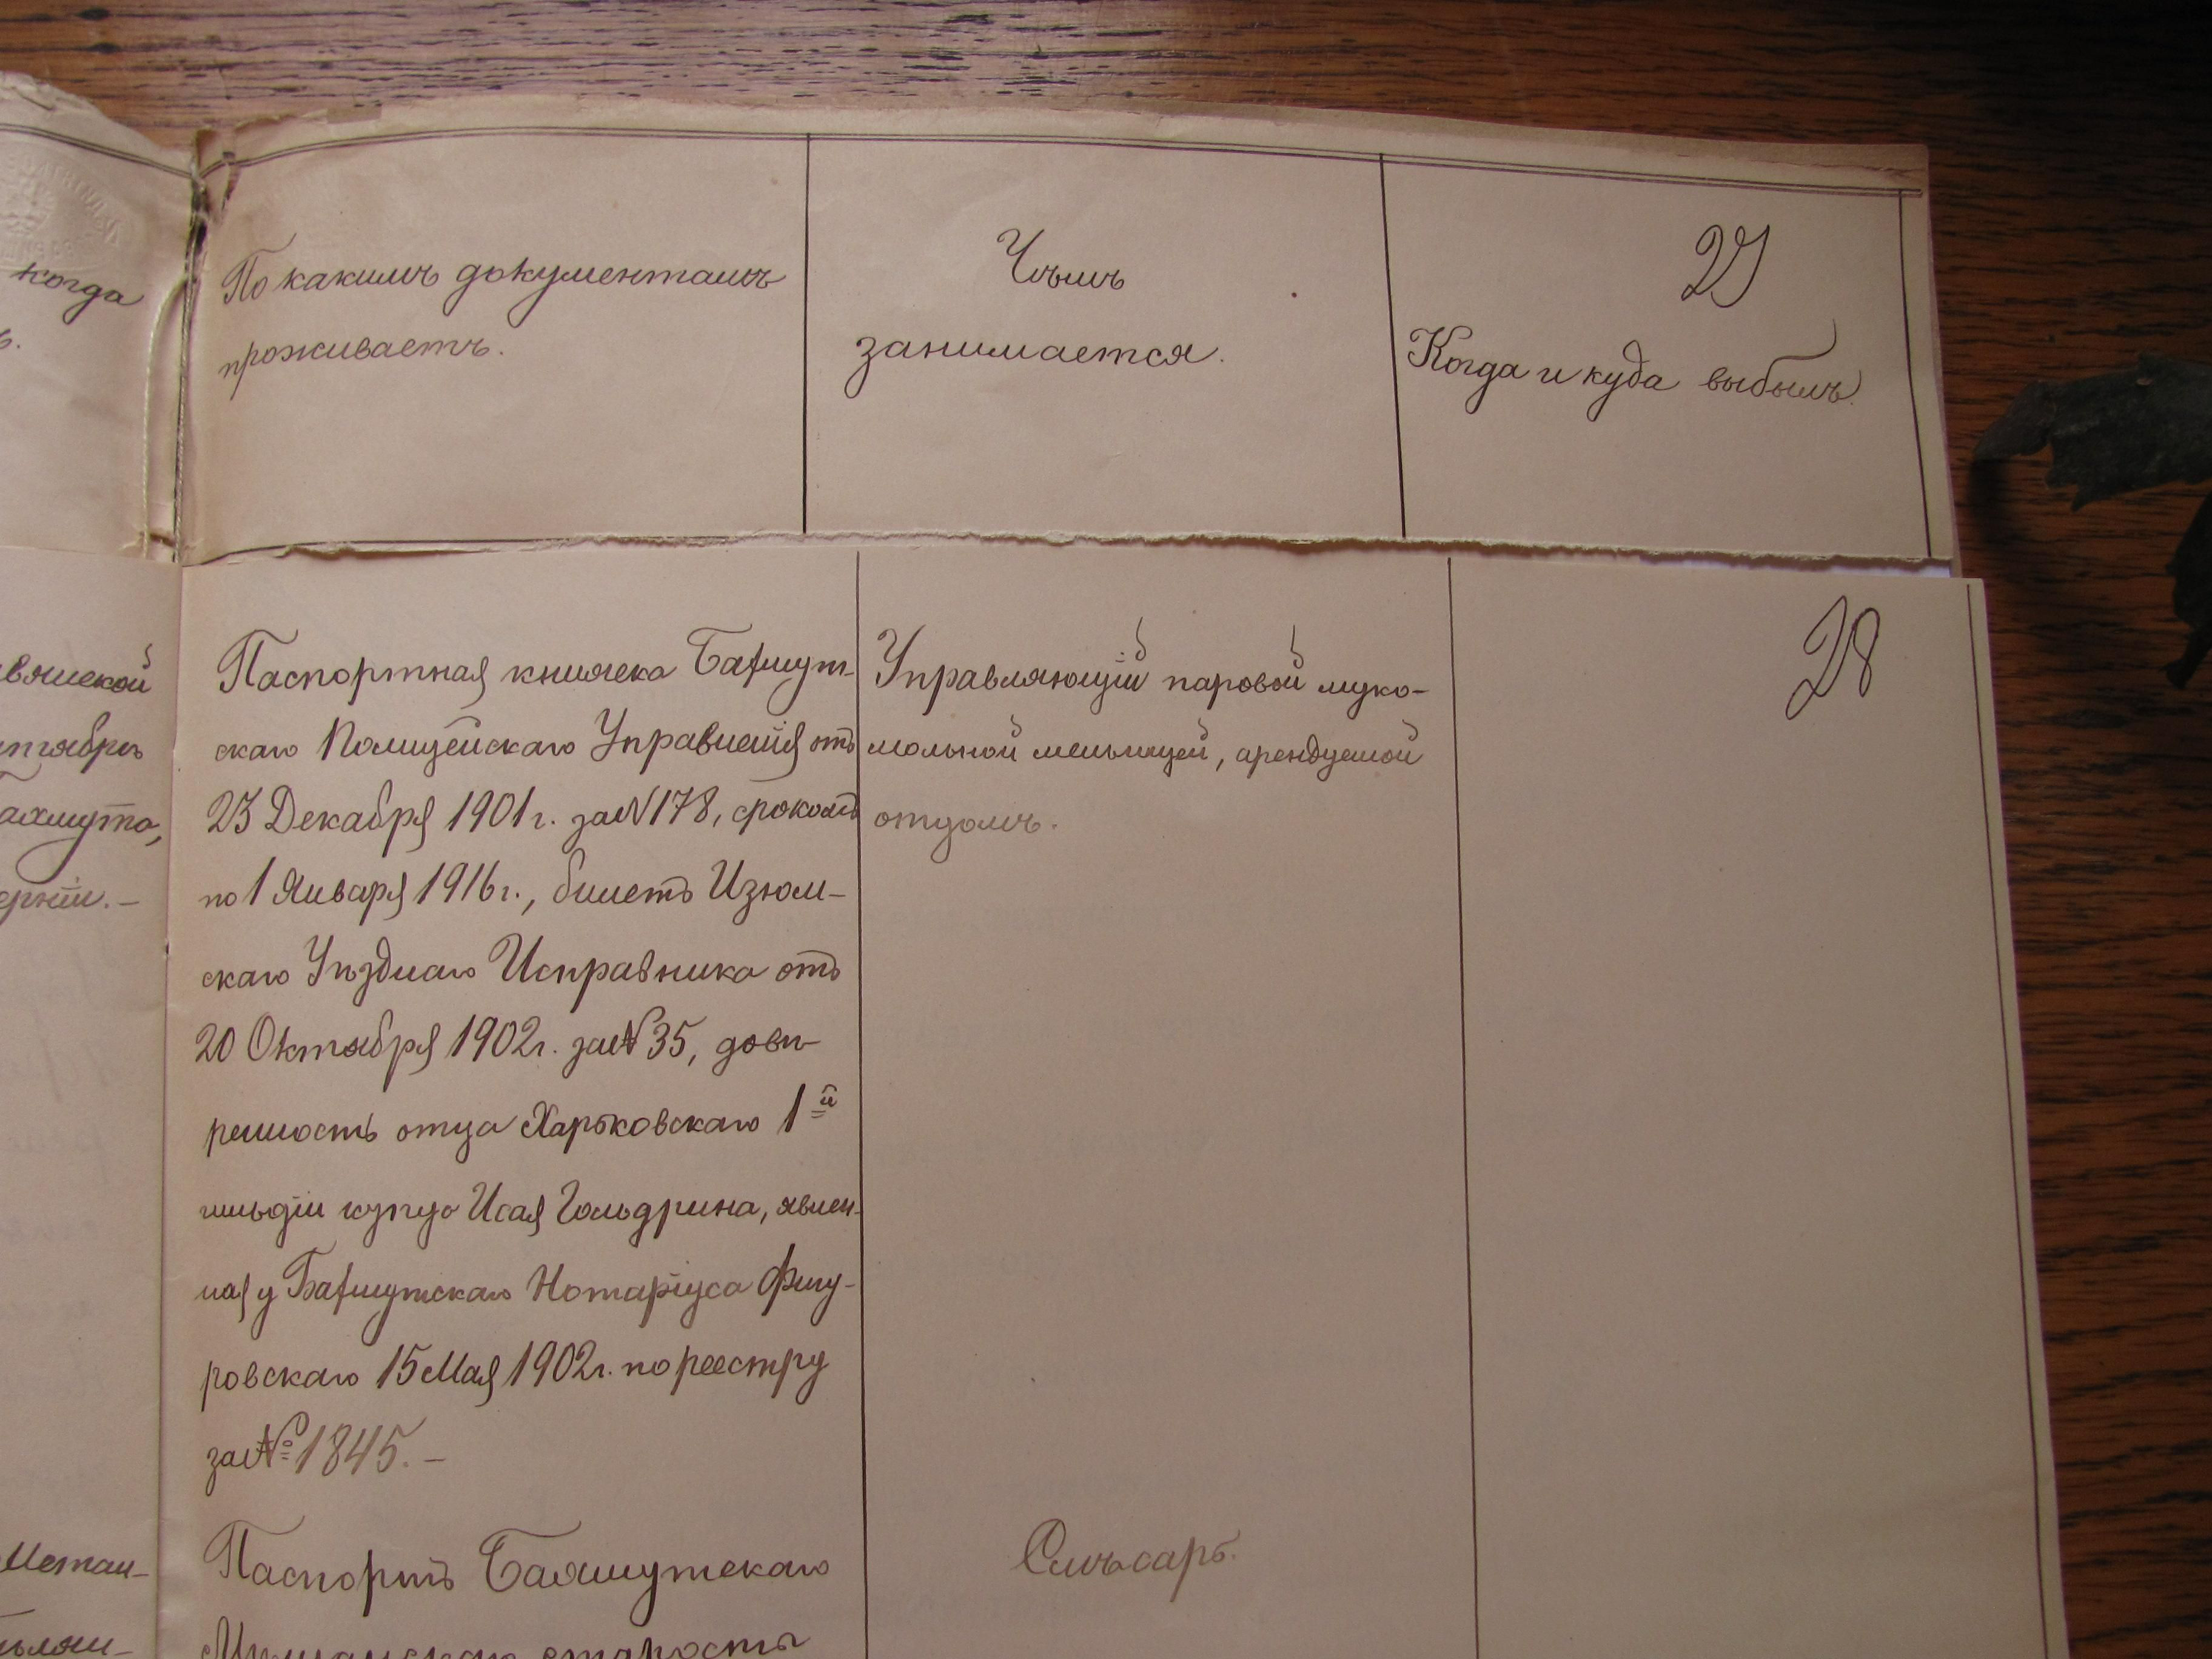 когда
По какимъ документамъ
проживаетъ.
Чѣмъ
занимается.
27
Когда и куда выбылъ.
28
Паспортная книжка Бахмут-
скаго Полицейскаго Управленія отъ
23 Декабря 1901 г. за N 178, срокомъ
по 1 Января 1916 г., билетъ Изюм-
скаго Уѣзднаго Исправника отъ
20 Октября 1902 г. за № 35, довѣ-
ренность отца Харьковскаго 1й
гильдіи купца Исая Гольдрина, явлен-
ная у Бахмутскаго Нотаріуса Фигу-
ровскаго 15 Мая 1902 г. по реестру
за № 1845. —
Управляющій паровой муко-
мольной мельницей, арендуемой
отцомъ.
Паспортъ Бахмутскаго
Мѣщанскаго старосты
Слѣсарь.
вянской
нтября
Бахмута,
ерніи. —